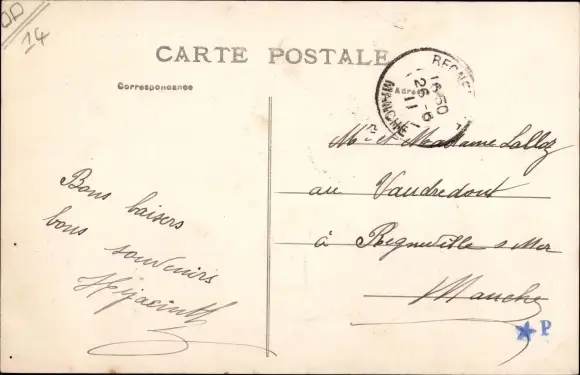 14
CARTE POSTALE
Correspondance
Adresse
REGNE
16*50
26-6
11
MANCHE
Mr et Madame Lalloz
au Vaudredout
à Regneville s Mer
Manche
Bons baisers
bons souvenirs
Hyacinth
P